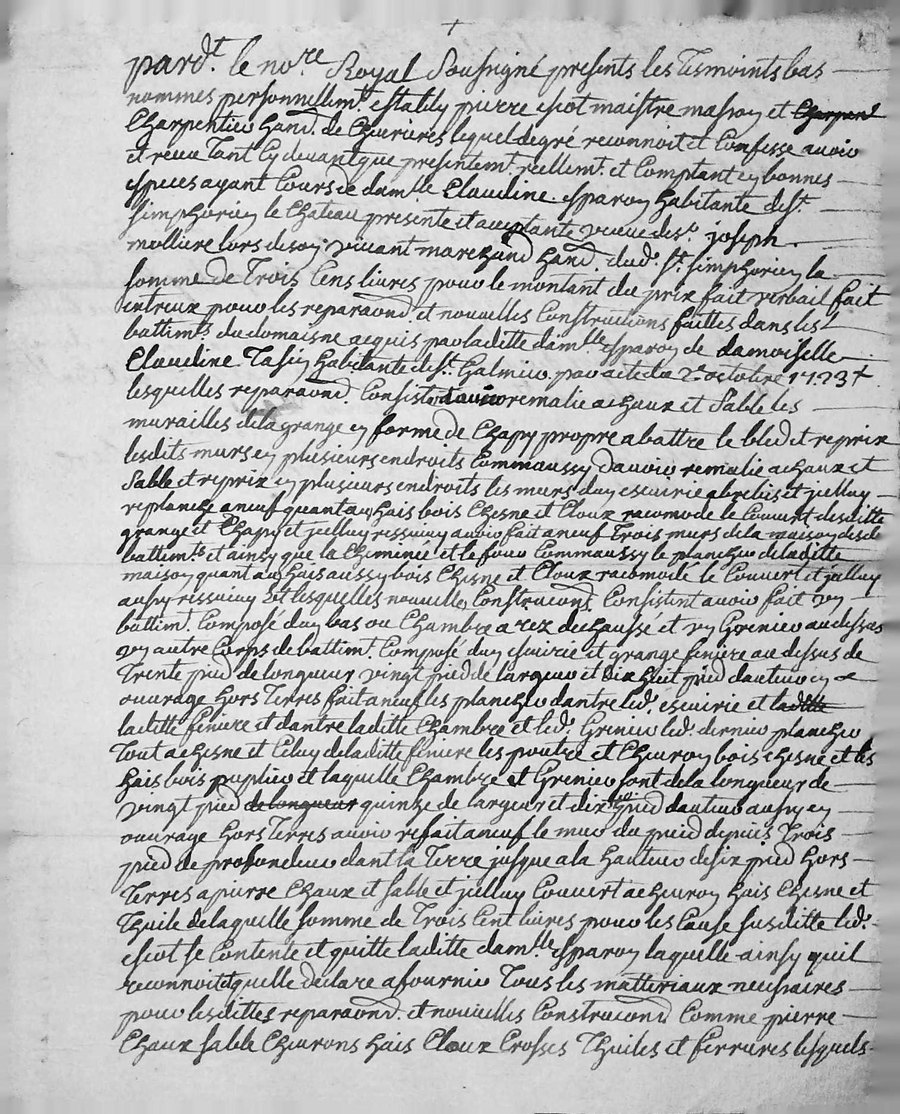 pardt. le nore Royal Soussigné presents les tesmoints bas
nommes personnellemt. estably pierre esiot maistre masson et
Charpentier hand. de Chevrieres lequel de gré reconnoit et Confesse avoir
et receu tant cy devant que presentemt. reellemt. et Comptant en bonnes
especes ayant Cours de damlle. Claudine esparon habitante de St.
simphorien le Chateau presente et aceptante veuve de sr. joseph
molliere lors de son vivant marchand hand. dud. St. simphorien la
somme de Trois Cens livres pour le montant du prix fait verbail fait
entreux pour les reparaond. et nouvelles Constructions faittes dans les
battimts. du domaisne acquis par laditte damlle esparon de damoiselle
Claudine Tasin habitante de St. Galmier par acte du 2e. octobre 1723
lesquelles reparaond. Consistet davoir remalie a chaux et sable les
murailles de la grange en forme de Chapy propre a battre le bled et reprix
lesdits murs en plusieurs endroits Comm aussy davoir remalie a chaux et
sable et reprix en plusieurs endroits les murs dun escuirie a brebis et jcelluy
replanche a neuf quant au hais bois Chesne et Cloux racomode le Couvert desditte
grange et Chapy et jcelluy ressuivy avoir fait a neuf Trois murs de la maison desd.
battimts. et ainsy que la Cheminée et le four Comm aussy le plancher de laditte
maison quant au hais aussy bois Chesne et Cloux racomodé le Couvert et jcelluy
aussy ressuivy et lesquelles nouvelles Construcond. Consistent avoir fait un
battimt. Composé dun bas ou Chambre a rez de chaussé et un Grenier au dessus
un autre Corps de battimt. Composé dun escuirie et grange feniere au dessus de
Trente pied de longueur vingt pied de largeur et dix huit pied dauteur en
ouvrage hors Terres fait a neuf les plancher dantre led. escuirie et laditte
laditte feniere et dantre laditte Chambre et led. Grenier led. dernier plancher
Tout a chesne et Celuy de laditte feniere les poutre et Chevron bois chesne et les
hais bois puplier et laquelle Chambre et Grenier sont de la longueur de
vingt pied de longueur quinze de largeur et dix huit pied dauteur aussy en
ouvrage hors Terres avoir refait a neuf le mur du pried depuis Trois
pied de profondeur dant la Terre jusque a la hauteur de six pied hors
Terres a pierre Chaux et sable et jcelluy Couvert a chevron hais Chesne et
Thuile de laquelle somme de Trois Cent livres pour les Cause susditte led.
esiot se Contente et quitte laditte damlle. esparon laquelle ainsy quil
reconnoit quelle declare a fournir Tous les matteriaux necessaires
pour lesdittes reparaond. et nouvelles Construcond. Comme pierre
Chaux sable Chevrons hais Cloux Crosses Thuiles et ferrures lesquels